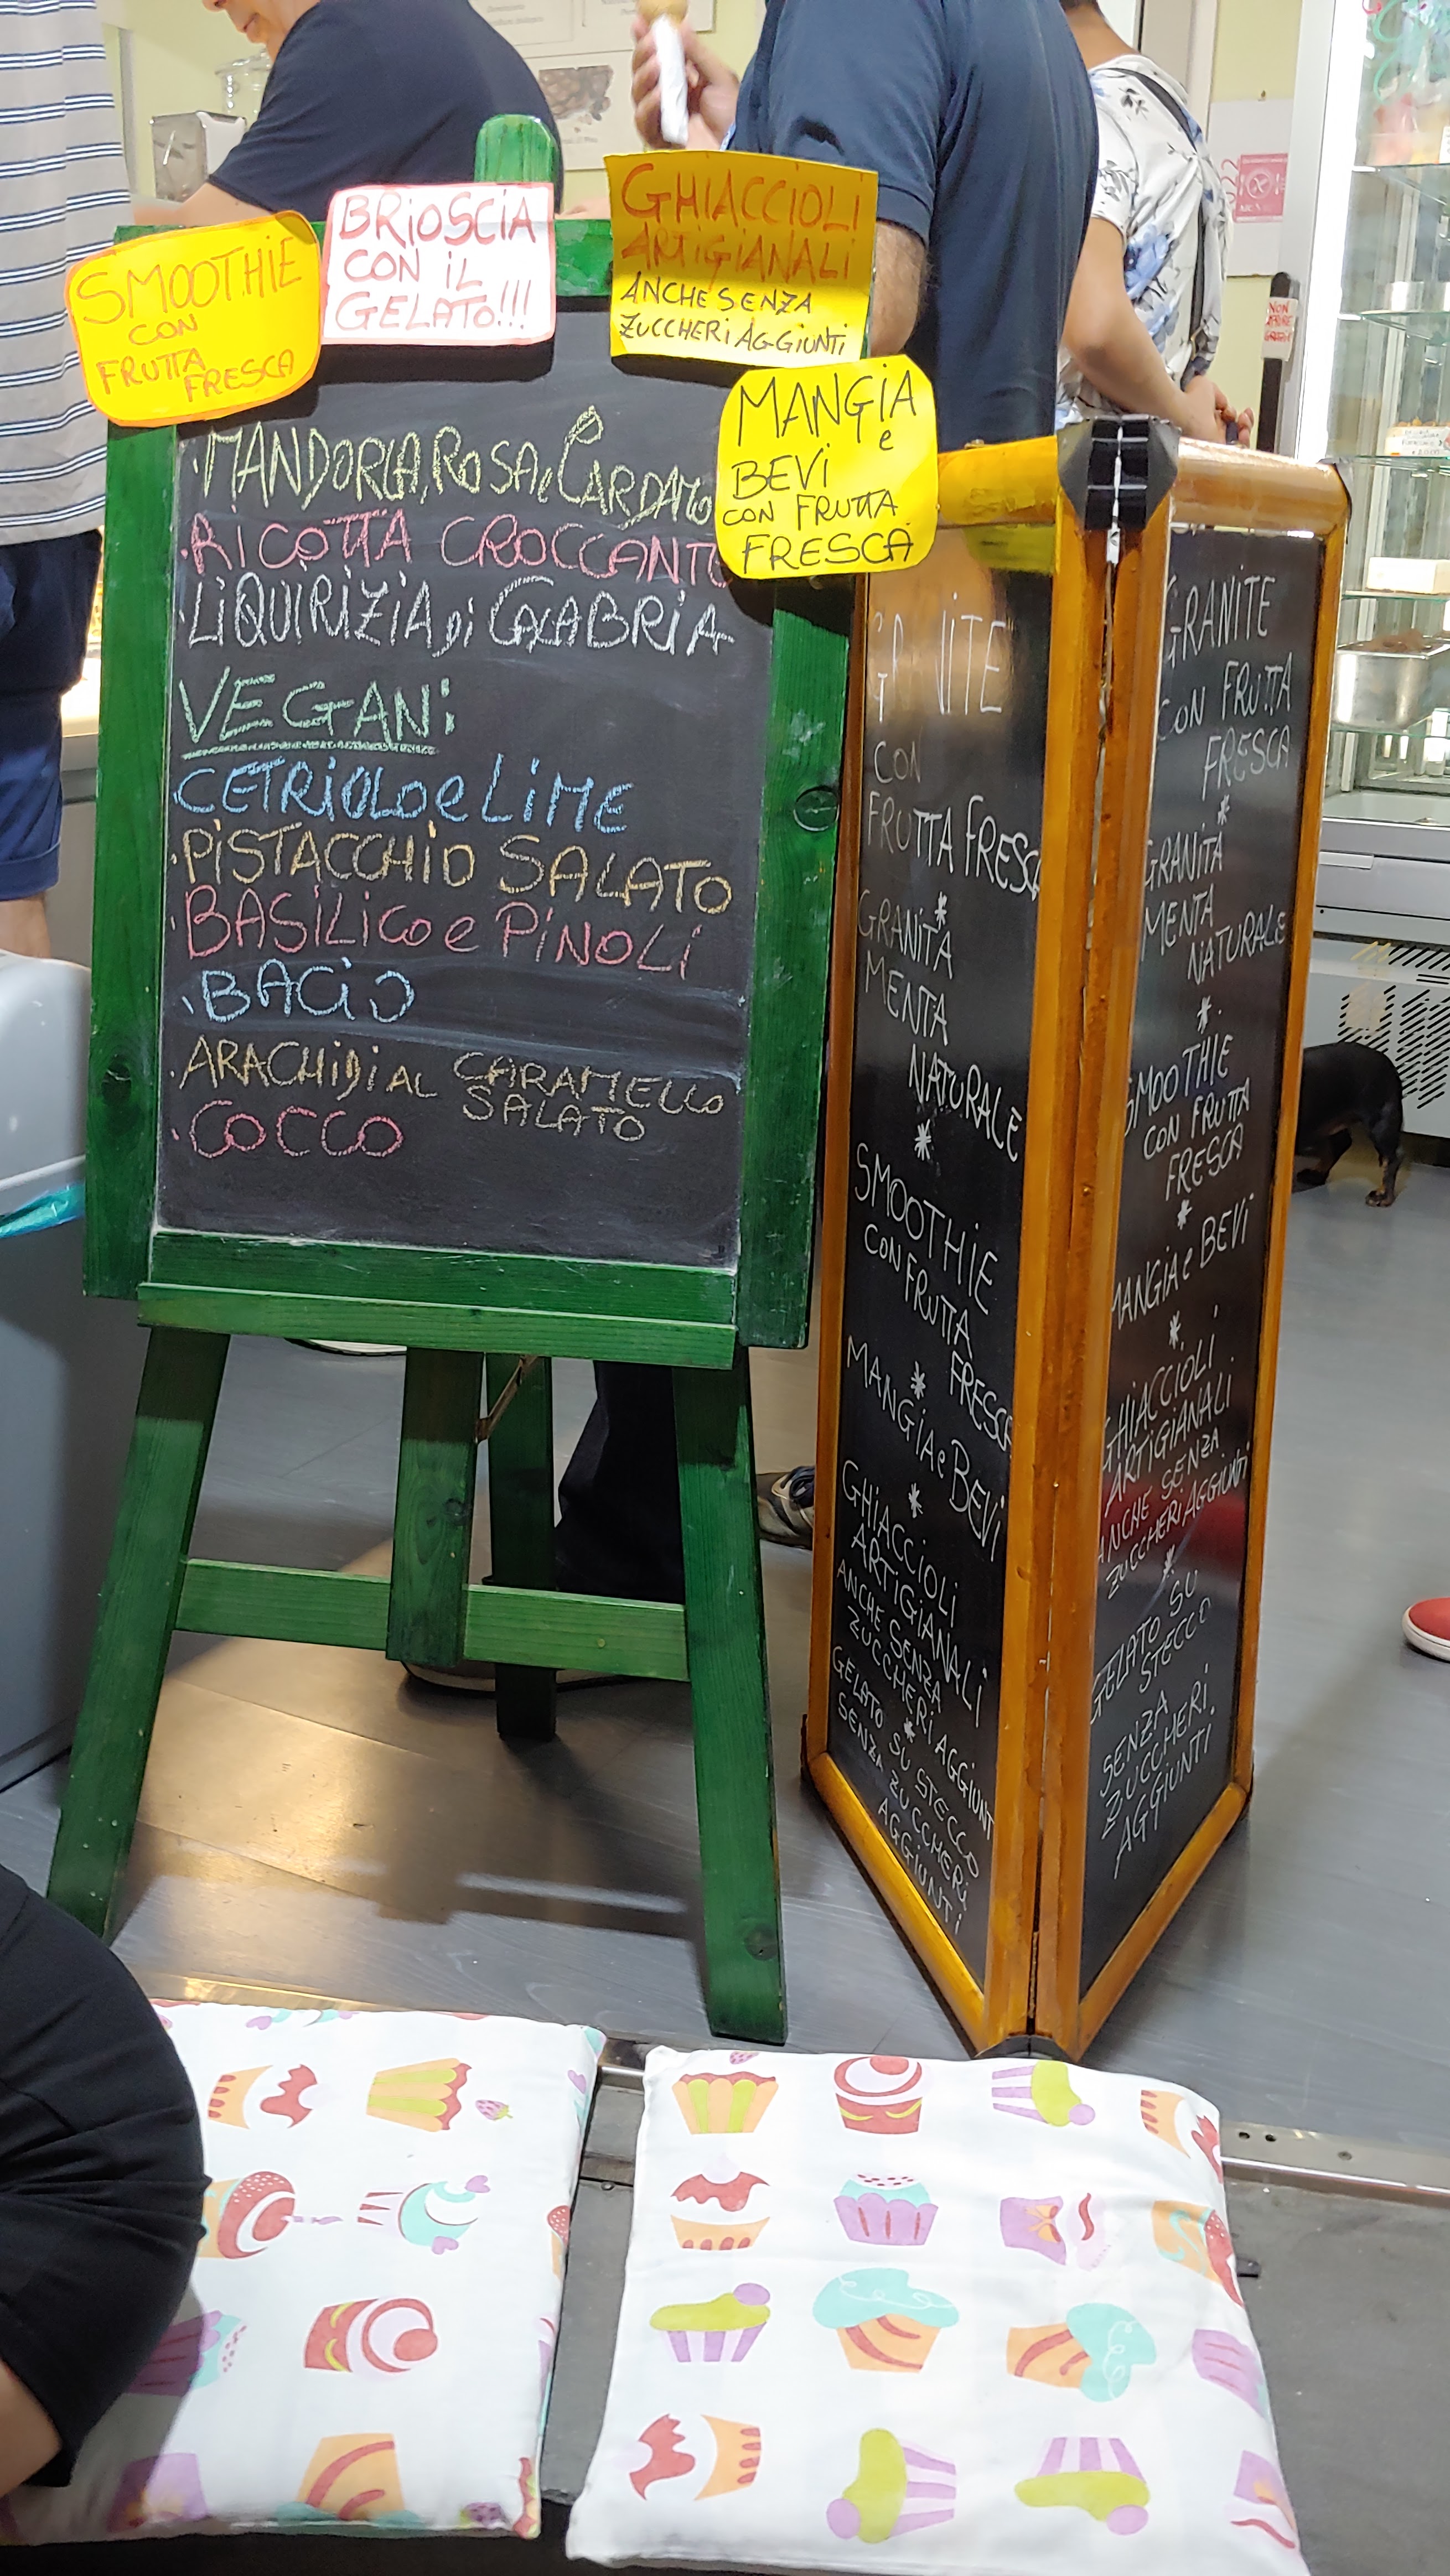 SMOOTHIE
CON
FRUTTA
FRESCA
BRIOSCIA
CON IL
GELATO!!!
GHIACCIOLI
ARTIGIANALI
ANCHE SENZA
ZUCCHERI AGGIUNTI
MANGIA
e
BEVI
CON FRUTTA
FRESCA
·MANDORLA, ROSA e CARDAMO
·RICOTTA CROCCANTE
·LIQUIRIZIA DI CALABRIA
VEGANI
CETRIOLO e LIME
·PISTACCHIO SALATO
·BASILICO e PINOLI
·BACIO
·ARACHIDI AL CARAMELLO
SALATO
·COCCO
CON
FRUTTA FRESC
*
GRANITA
MENTA
NATURALE
*
SMOOTHIE
CON FRUTTA
FRESCA
*
MANGIA e BEVI
*
GHIACCIOLI
ARTIGIANALI
ANCHE SENZA
ZUCCHERI AGGIUNT
*
GELATO SU STECCO
SENZA ZUCCHERI
AGGIUNTI
GRANITE
CON FRUTTA
FRESCA
*
GRANITA
MENTA
NATURALE
*
SMOOTHIE
CON FRUTTA
FRESCA
*
MANGIA e BEVI
*
GHIACCIOLI
ARTIGIANALI
ANCHE SENZA
ZUCCHERI AGGIUNTI
*
GELATO SU
STECCO
SENZA
ZUCCHERI
AGGIUNTI
NON